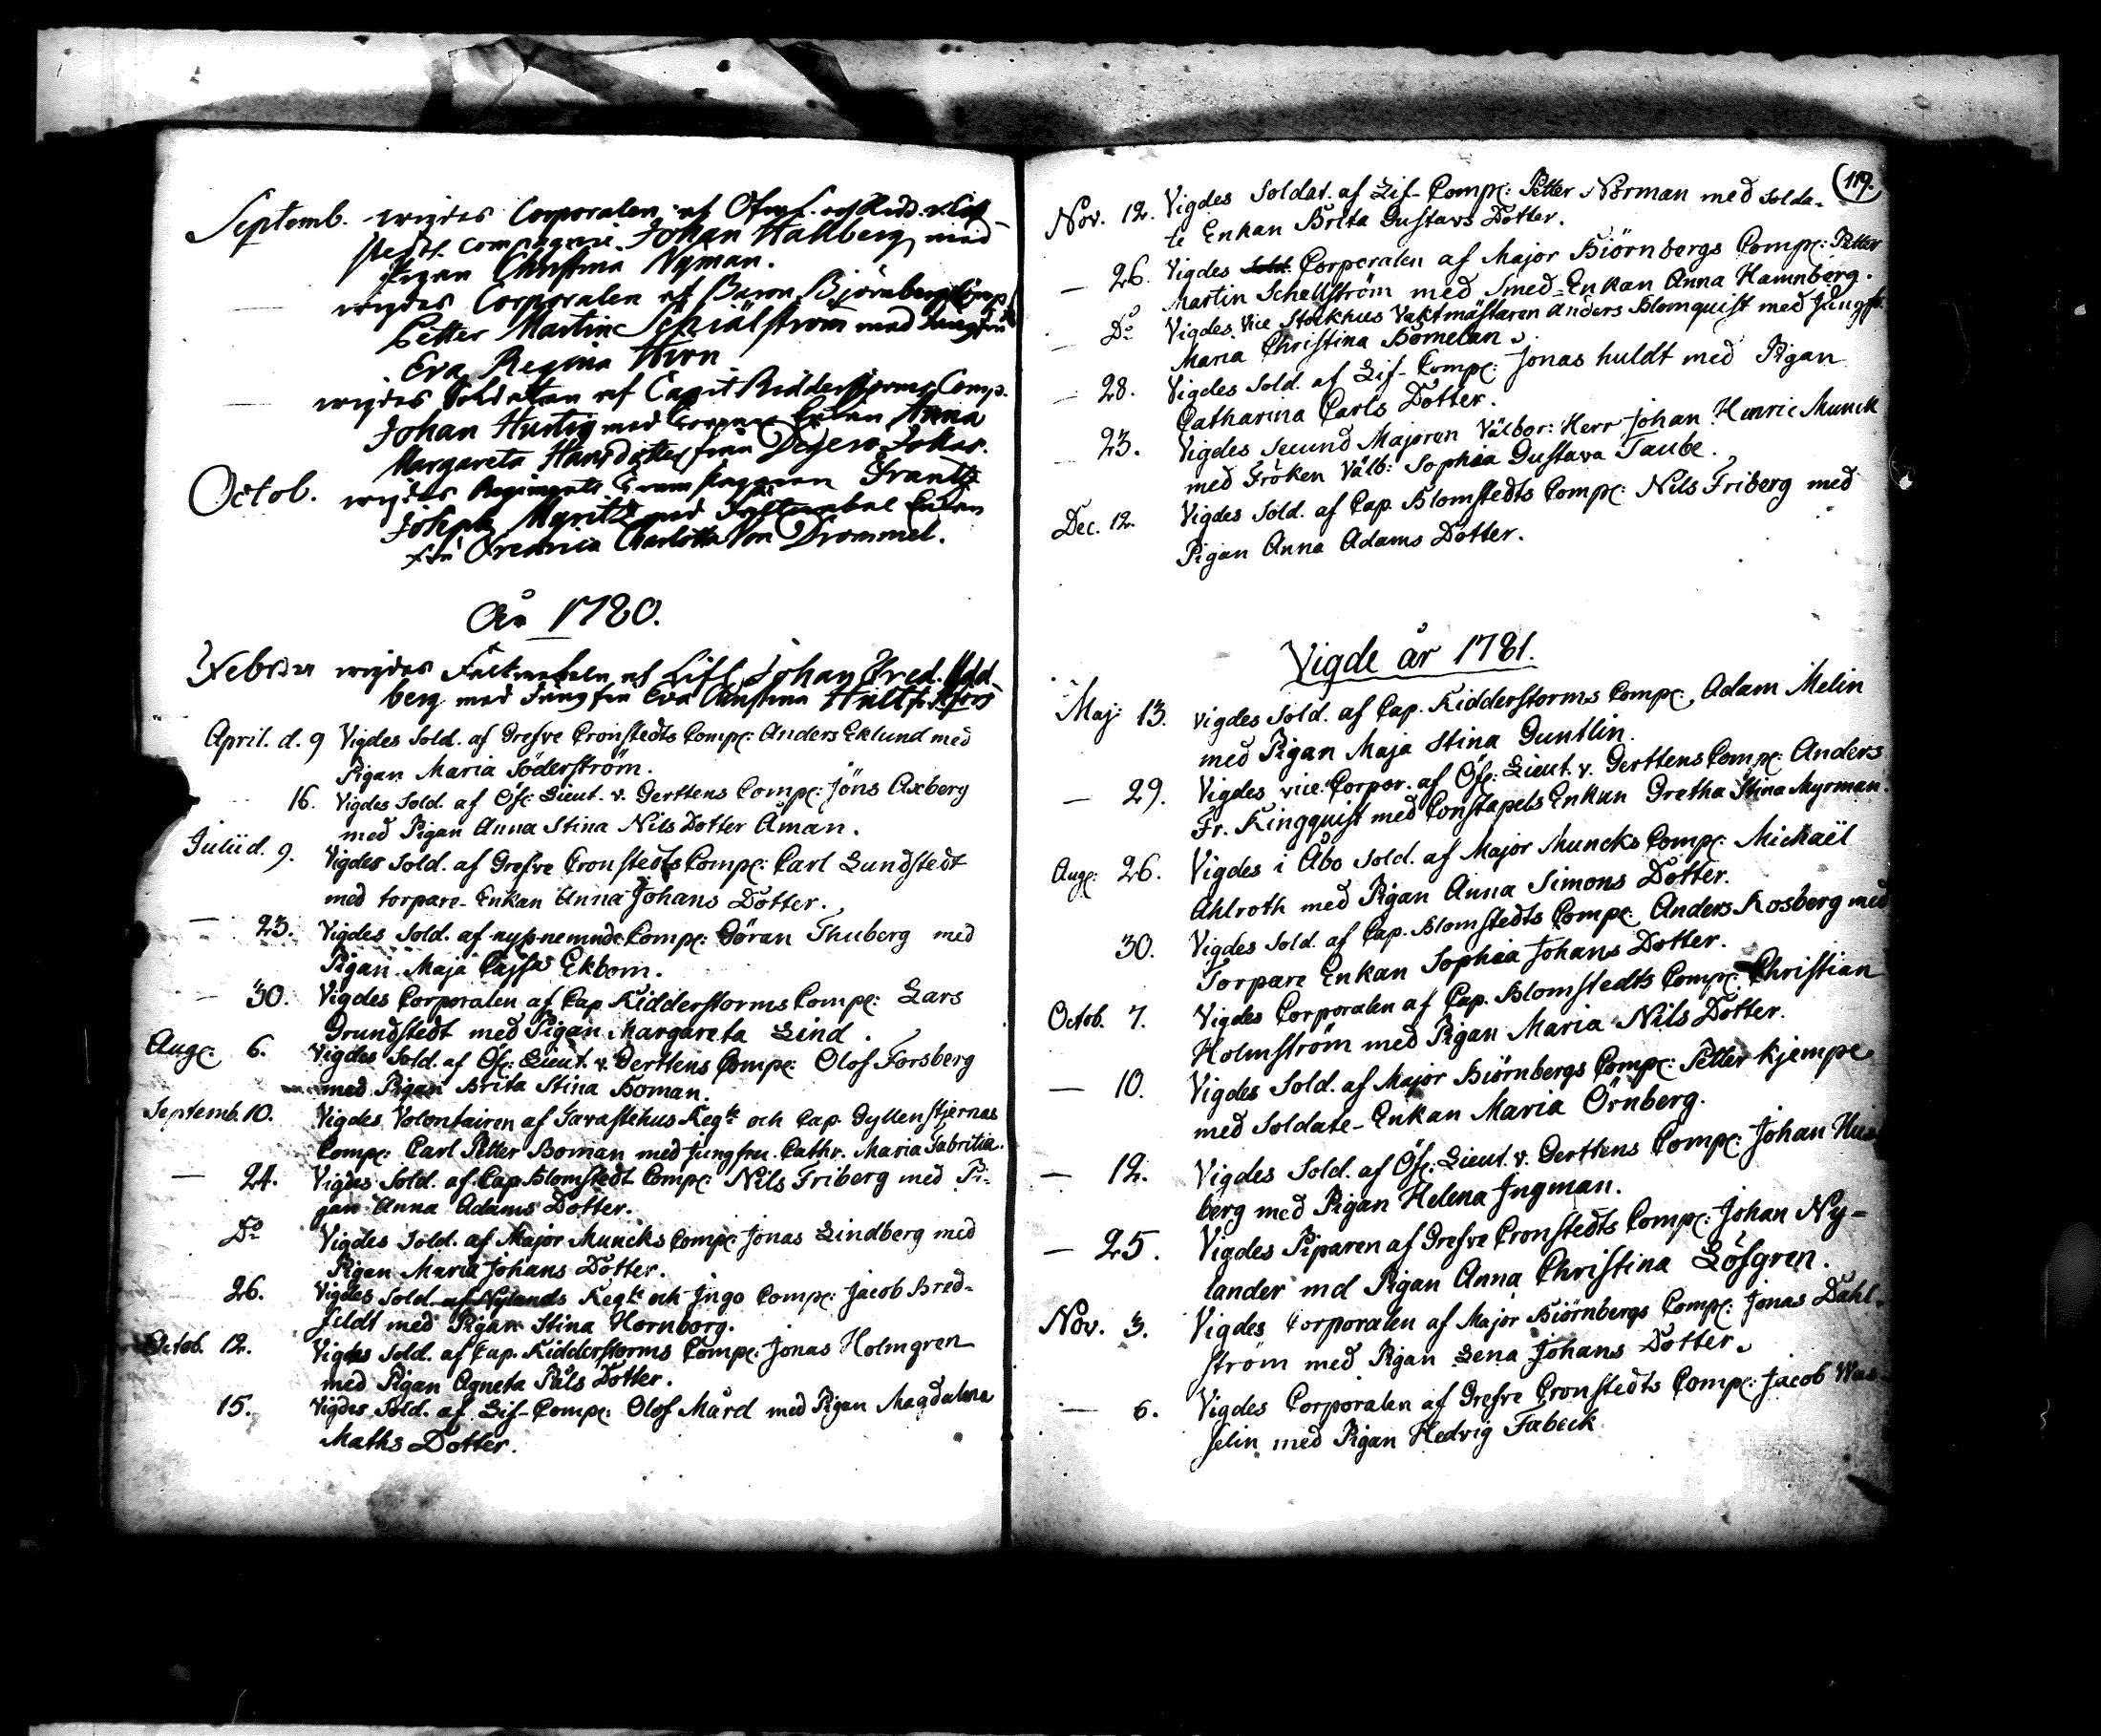 Septemb. wigdes Corporalen af
Compagnie Johan Hallberg med
Pigan Christina Nyman.
— wigdes Corporalen af Baron Björnbergs Comp.
Petter Martin Schiälström med Jungfru
Eva Regina Thorn
— wigdes Soldaten af Capit Ridderstorms Comp.
Johan Hurtig med Enkan Anna
Margareta Hansdotter från Degerö
Octob. wigdes Regiments Frantz
Joseph Myritz med Enkan
Fru Fredrica Charlotta Von Drommel.
År 1780.
Febr. wigdes Fältwebeln af Lifl. Johan Fred. Udd-
berg med Jungfru Eva Christina
April. d. 9 Vigdes Sold. af Grefve Cronstedts Comp: Anders Eklund med
Pigan Maria Söderström.
16. Vigdes Sold. af Öf: Lieut. v. Gerttens Comp: Jöns Axberg
med Pigan Anna Stina Nils Dotter Åman.
Julii d. 9. Vigdes Sold. af Grefve Cronstedts Comp: Carl Lundstedt
med torpare-Enkan Anna Johans Dotter.
— 23. Vigdes Sold. af nyss nemnde Comp: Göran Thuberg med
Pigan Maja Cajsa Ekbom.
— 30. Vigdes Corporalen af Cap Ridderstorms Comp: Lars
Grundstedt med Pigan Margareta Lind.
Aug: 6. Vigdes Sold. af Öf: Lieut. v. Gerttens Comp: Olof Forsberg
med Pigan Brita Stina Boman.
Septemb. 10. Vigdes Volontairen af Tavastehus Reg:te och Cap. Gyllenstjernas
Comp: Carl Petter Boman med jungfru Cathr. Maria Fabritia.
— 24. Vigdes Sold. af Cap Blomstedt Comp: Nils Friberg med Pi-
gan Anna Adams Dotter.
D:o Vigdes Sold. af Major Muncks Comp: Jonas Lindberg med
Pigan Maria Johans Dotter.
26. Vigdes Sold. af Nylands Reg:te och Ingo Comp: Jacob Bred-
feldt med Pigan Stina Hornborg.
Octob. 12. Vigdes Sold. af Cap. Ridderstorms Comp: Jonas Holmgren
med Pigan Agneta Påls Dotter.
15. Vigdes Sold. af Lif-Comp: Olof Mård med Pigan Magdalena
Maths Dotter.
119.
Nov. 12. Vigdes Soldat. af Lif-Comp: Petter Norman med Solda-
te Enkan Brita Gustavs Dotter.
— 26. Vigdes Sold. Corporalen af Major Biörnbergs Comp: Petter
Martin Schellström med Smed-Enkan Anna Hamnberg.
— D:o Vigdes Vice Stockhus Vaktmästaren Anders Blomquist med Jungfr.
Maria Christina Bomelan.
— 28. Vigdes Sold. af Lif-Comp: Jonas huldt med Pigan
Catharina Carls Dotter.
— 23. Vigdes Secund Majoren Välbor: Herr Johan Henric Munck
med Fröken Välb: Sophia Gustava Taube.
Dec. 12. Vigdes Sold. af Cap. Blomstedts Comp: Nils Friberg med
Pigan Anna Adams Dotter.
Vigde år 1781.
Maj: 13. vigdes Sold. af Cap. Ridderstorms Comp: Adam Melin
med Pigan Maja Stina Guntlin.
— 29. Vigdes vice Corpor. af Öf: Lieut. v. Gerttens Comp: Anders
Fr. Ringquist med Constapels Enkan Gretha Stina Myrman.
Aug: 26. Vigdes i Åbo Sold. af Major Muncks Comp: Michaël
Ahlroth med Pigan Anna Simons Dotter.
30. Vigdes Sold. af Cap. Blomstedts Comp: Anders Rosberg med
Torpare Enkan Sophia Johans Dotter.
Octob. 7. Vigdes Corporalen af Cap. Blomstedts Comp: Christian
Holmström med Pigan Maria Nils Dotter.
— 10. Vigdes Sold. af Major Biörnbergs Comp: Petter kjempe
med Soldate-Enkan Maria Örnberg.
— 12. Vigdes Sold. af Öf: Lieut. v. Gerttens Comp: Johan
berg med Pigan Helena Ingman.
— 25. Vigdes Piparen af Grefve Cronstedts Comp: Johan Ny-
lander md Pigan Anna Christina Löfgren.
Nov. 3. Vigdes Corporalen af Major Biörnbergs Comp: Jonas Dahl-
ström med Pigan Lena Johans Dotter.
— 6. Vigdes Corporalen af Grefve Cronstedts Comp: Jacob Was-
selin med Pigan Hedvig Fabeck